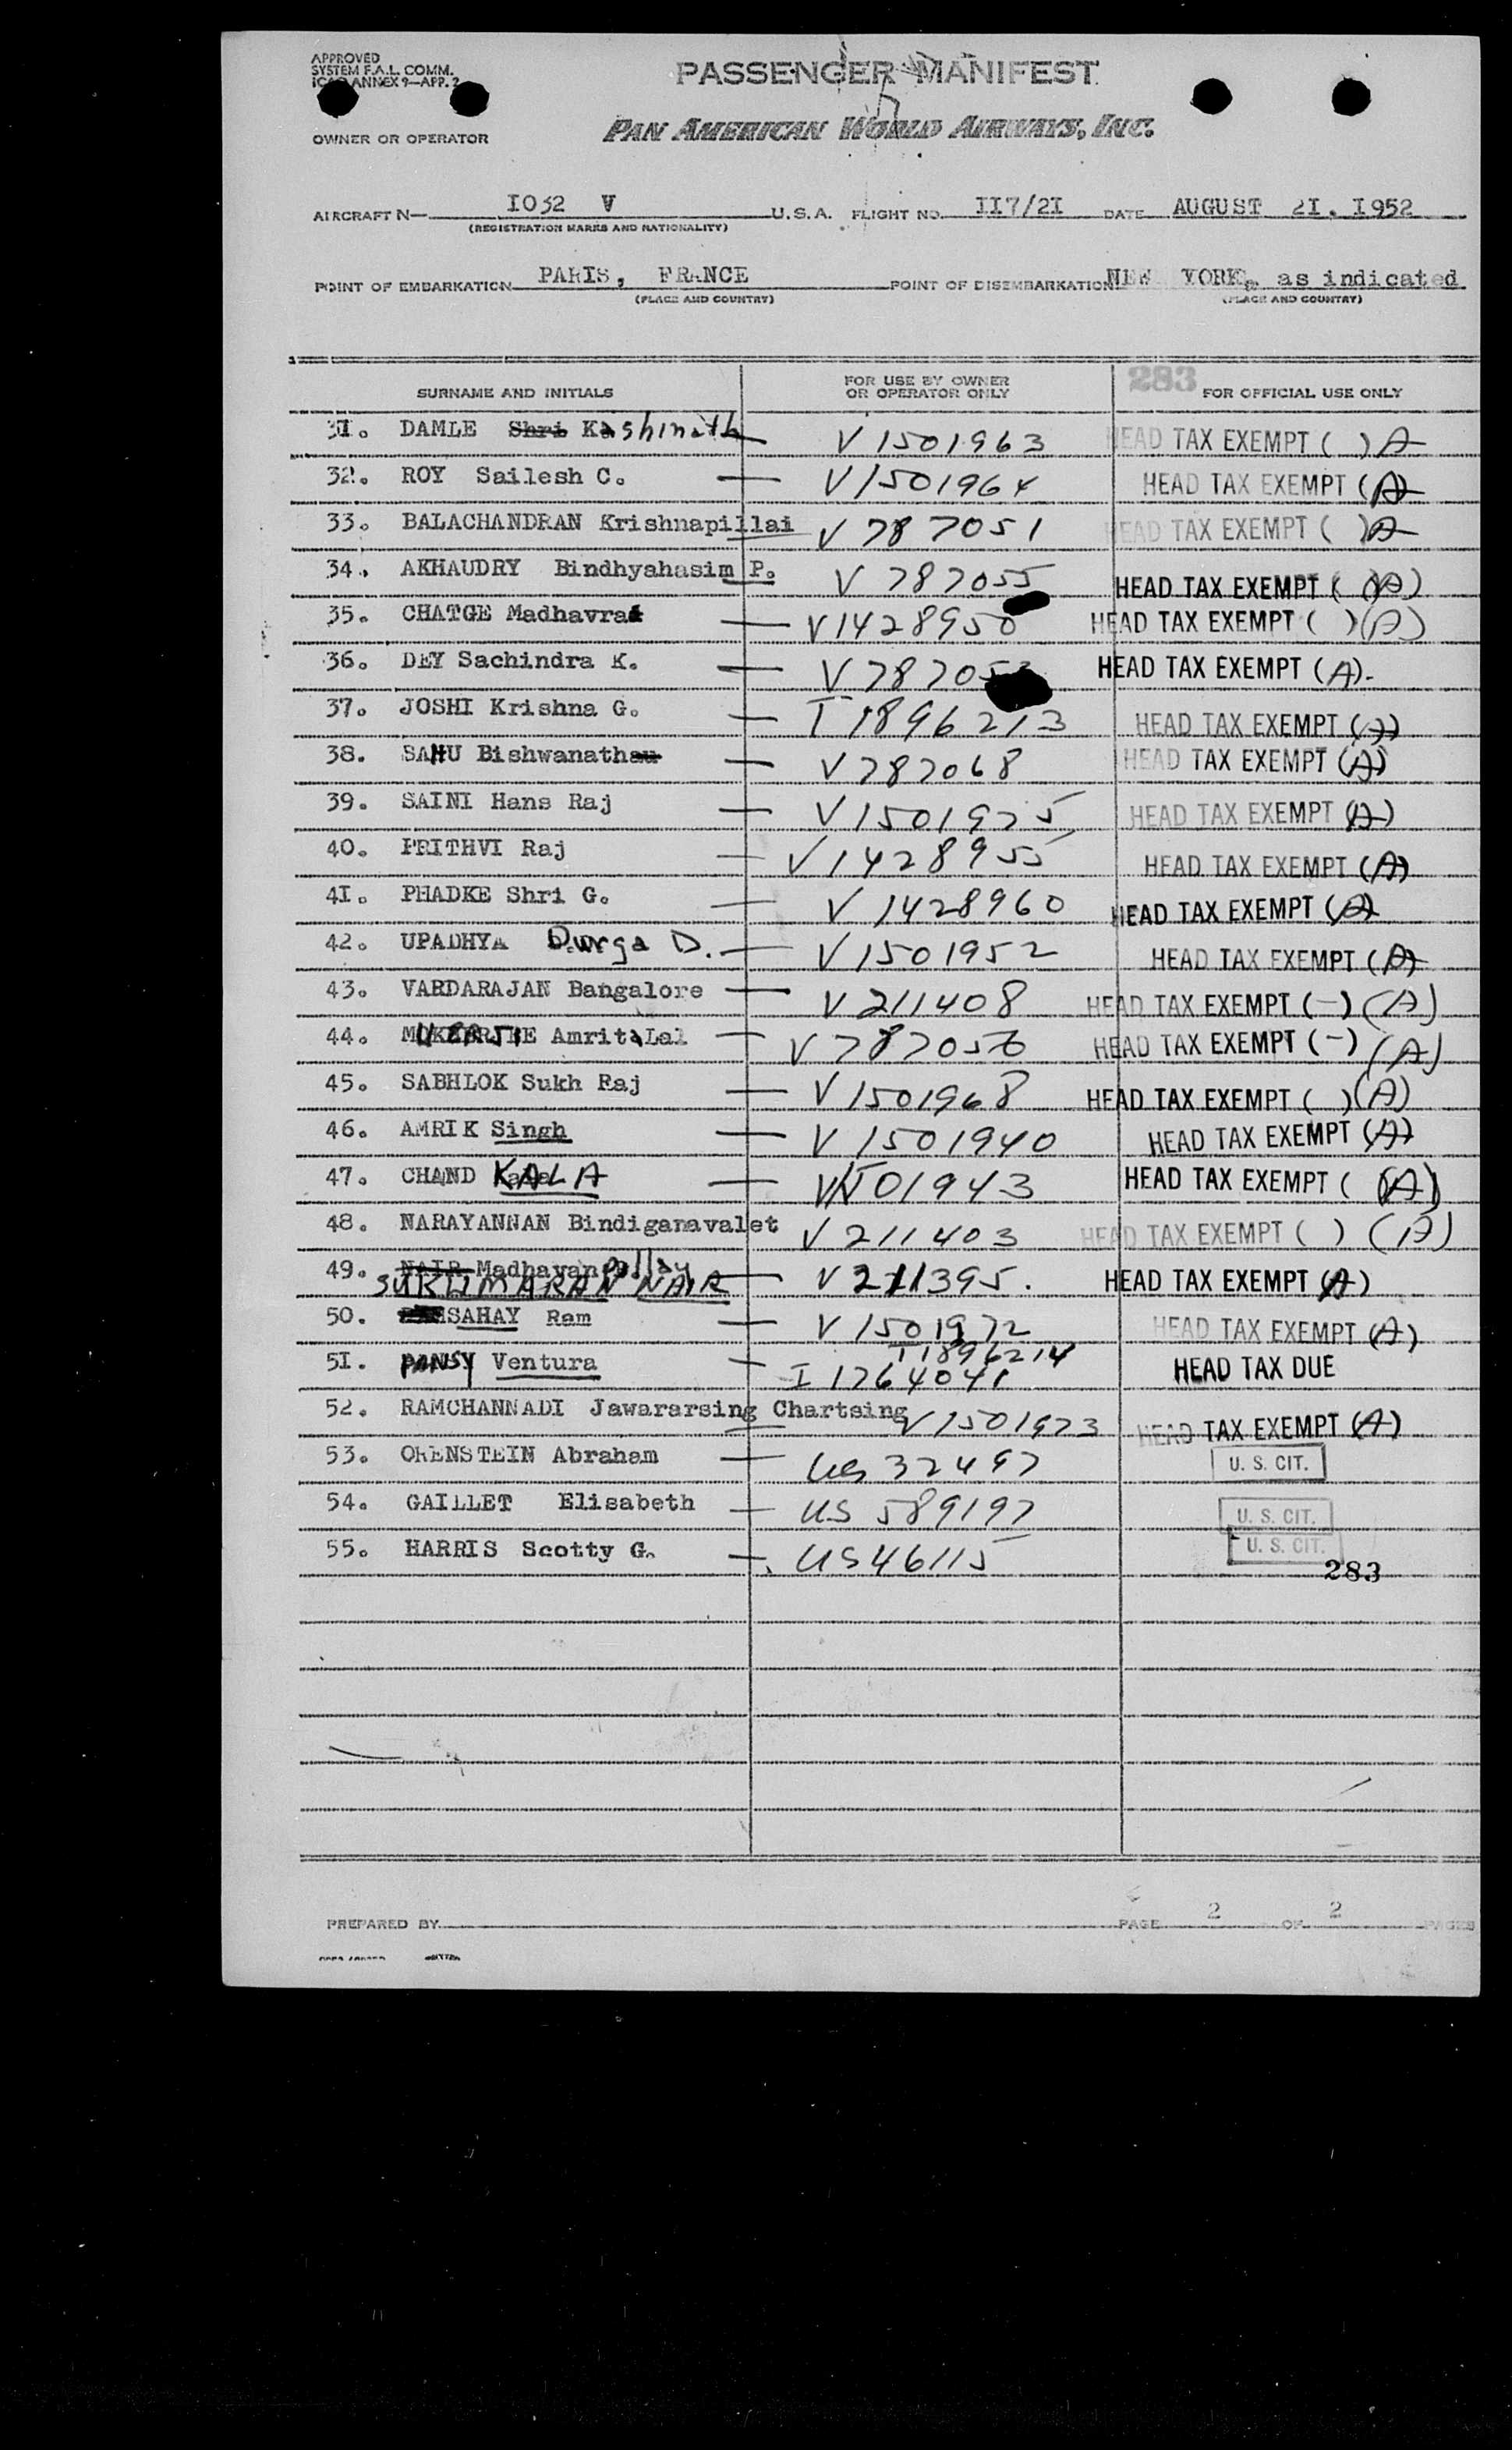 APPROVED
SYSTEM F.A.L. COMM.
ICAO ANNEX 9—APP. 2
PASSENGER MANIFEST
OWNER OR OPERATOR
PAN AMERICAN WORLD AIRWAYS, INC.
AIRCRAFT N— I032 V U.S.A. FLIGHT NO. II7/2I DATE AUGUST 2I. I952
(REGISTRATION MARKS AND NATIONALITY)
POINT OF EMBARKATION PARIS, FRANCE POINT OF DISEMBARKATION NEW YORK, as indicated
(PLACE AND COUNTRY) (PLACE AND COUNTRY)
283
SURNAME AND INITIALS FOR USE BY OWNER OR OPERATOR ONLY FOR OFFICIAL USE ONLY
3I. DAMLE Shri Kashinath V 1501963 HEAD TAX EXEMPT ( ) A
32. ROY Sailesh C. — V 1501964 HEAD TAX EXEMPT (A)
33. BALACHANDRAN Krishnapillai V 787051 HEAD TAX EXEMPT ( ) A
34. AKHAUDRY Bindhyahasim P. V 787055 HEAD TAX EXEMPT ( )(A)
35. CHATGE Madhavra — V1428950 HEAD TAX EXEMPT ( )(A)
36. DEY Sachindra K. — V 78705 HEAD TAX EXEMPT (A).
37. JOSHI Krishna G. — I 1896213 HEAD TAX EXEMPT (A)
38. SAHU Bishwanath — V 787068 HEAD TAX EXEMPT (A)
39. SAINI Hans Raj — V 1501975 HEAD TAX EXEMPT (A)
40. PRITHVI Raj — V 1428955 HEAD TAX EXEMPT (A)
4I. PHADKE Shri G. — V 1428960 HEAD TAX EXEMPT (A)
42. UPADHYA Durga D. — V 1501952 HEAD TAX EXEMPT (A)
43. VARDARAJAN Bangalore — V 211408 HEAD TAX EXEMPT (-) (A)
44. Amrita Lal — V 787056 HEAD TAX EXEMPT (-) (A)
45. SABHLOK Sukh Raj — V 1501968 HEAD TAX EXEMPT ( )(A)
46. AMRIK Singh — V 1501940 HEAD TAX EXEMPT (A)
47. CHAND KALA — V1501943 HEAD TAX EXEMPT ( (A))
48. NARAYANNAN Bindiganavalet V 211403 HEAD TAX EXEMPT ( ) (A)
49. NAIR Madhavan Pillay
SUKUMARAN NAIR — V 211395. HEAD TAX EXEMPT (A)
50. SAHAY Ram — V 1501972 HEAD TAX EXEMPT (A)
I 1896214
5I. PANSY Ventura — I 1764041 HEAD TAX DUE
52. RAMCHANNADI Jawararsing Chartsing V 1501973 HEAD TAX EXEMPT (A)
53. ORENSTEIN Abraham — US 32497 U. S. CIT.
54. GAILLET Elisabeth — US 589197 U. S. CIT.
55. HARRIS Scotty G. — US 46115 U. S. CIT.
283
PREPARED BY PAGE 2 OF 2 PAGES